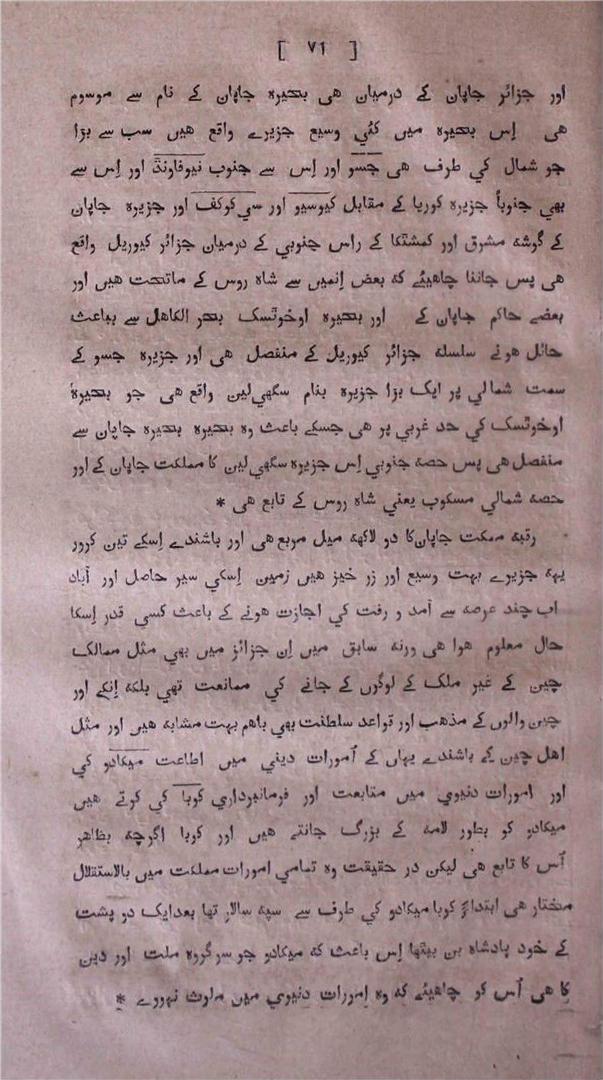 [ ٧١ ]
اور جزائر جاپان کے درمیان هی بحیرہ جاپان کے نام سے موسوم
هی اِس بحیرہ میں کئي وسیع جزیرے واقع هیں سب سے بڑا
جو شمال کي طرف هی جسو اور اِس سے جنوب نیوفاونڈ اور اِس سے
بهي جنوباً جزیرہ کوریا کے مقابل کیوسیو اور سي کوکف اور جزیرہ جاپان
کے گوشہ مشرق اور کمشٹکا کے راس جنوبي کے درمیان جزائر کیوریل واقع
هی پس جاننا چاهیئے کہ بعض اِنمیں سے شاہ روس کے ماتحت هیں اور
بعضے حاکم جاپان کے اور بحیرہ اوخوٹسک بحر الکاهل سے بباعث
حائل هونے سلسلہ جزائر کیوریل کے منفصل هی اور جزیرہ جسو کے
سمت شمالي پر ایک بڑا جزیرہ بنام سگهي‌لین واقع هی جو بحیرۂ
اوخوٹسک کي حد غربي پر هی جسکے باعث وہ بحیرہ بحیرہ جاپان سے
منفصل هی پس حصہ جنوبي اِس جزیرہ سگهي‌لین کا مملکت جاپان کے اور
حصہ شمالي مسکوب یعني شاہ روس کے تابع هی *
رقبہ ممکت جاپان‌کا دو لاکهہ میل مربع هی اور باشندے اِسکے تین کرور
یہہ جزیرے بهت وسیع اور زر خیز هیں زمین اِسکي سیر حاصل اور آباد
اب چند عرصہ سے آمد و رفت کي اجازت هونے کے باعث کسی قدر اِسکا
حال معلوم هوا هی ورنہ سابق میں اِن جزائز میں بهي مثل ممالک
چین کے غیر ملک کے لوگوں کے جانے کي ممانعت تهي بلکہ اِنکے اور
چین والوں کے مذهب اور قواعد سلطنت بهي باهم بهت مشابہ هیں اور مثل
اهل چین کے باشندے یهاں کے اُمورات دیني میں اطاعت میکادو کي
اور امورات دنیوي میں متابعت اور فرمانبرداري کوبا کي کرتے هیں
میکادو کو بطور لامہ کے بزرگ جانتے هیں اور کوبا اگرچہ بظاهر
اُس کا تابع هی لیکن در حقیقت وہ تمامي امورات مملکت میں بالاستقلال
مختار هی ابتداءً کوبا میکادو کي طرف سے سپہ سالار تها بعد ایک دو پشت
کے خود پادشاہ بن بیٹها اِس باعث کہ میکادو جو سرگروہ ملت اور دین
کا هی اُس کو چاهیئے کہ وہ اِمورات دنیوي میں ملوث نہووے *